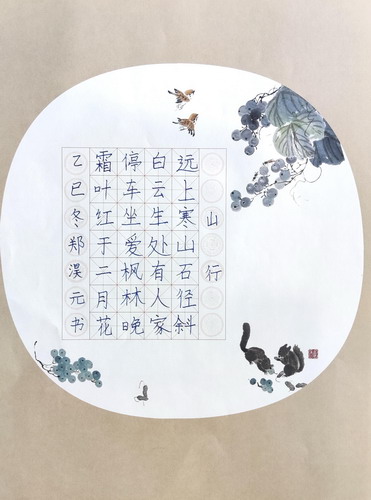 山行
远上寒山石径斜
白云生处有人家
停车坐爱枫林晚
霜叶红于二月花
乙巳冬郑淏元书